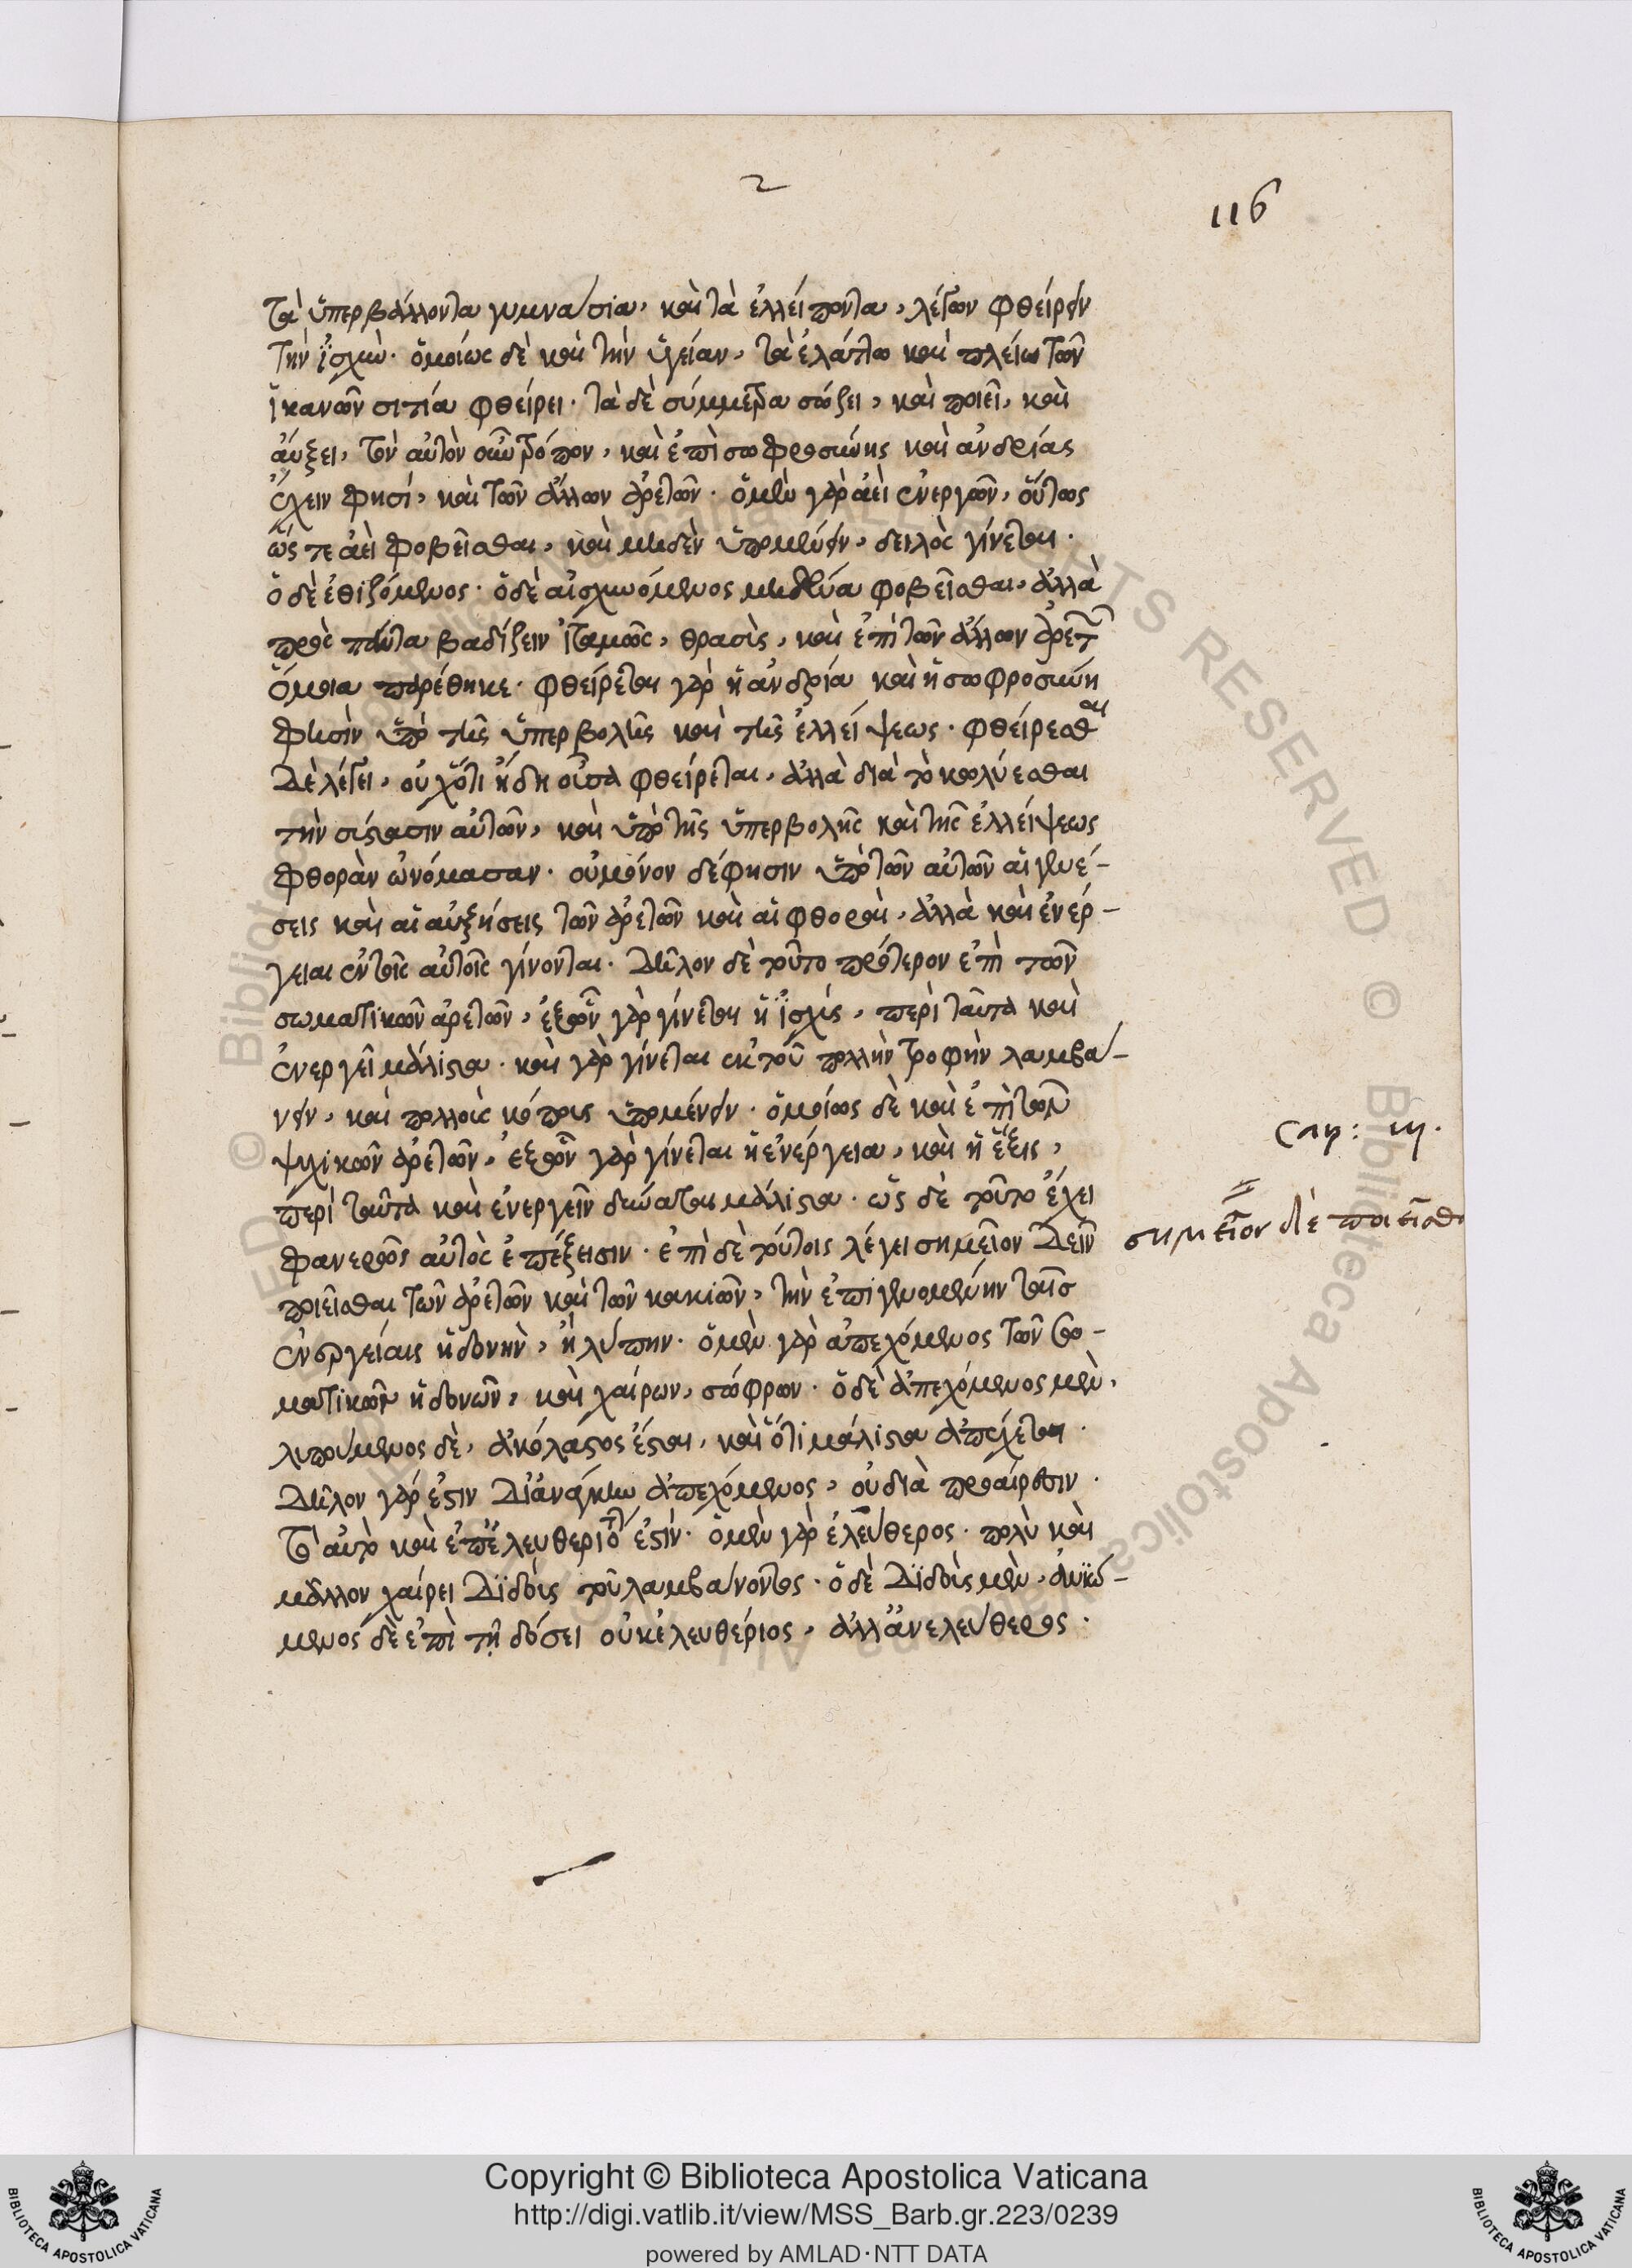 2
116
τὰ ὑπερβάλλοντα γυμνασία, καὶ τὰ ἐλλείποντα, λέγων φθείρειν
τὴν ἰσχὺν. ὁμοίως δὲ καὶ τὴν ὑγείαν, τὰ ἐλάττω καὶ πλείω τῶν
ἱκανῶν σιτία φθείρει. τὰ δὲ σύμμετρα σώζει, καὶ ποιεῖ, καὶ
ἀύξει, τὸν αὐτὸν οὖν τρόπον, καὶ ἐπὶ σωφροσύνης καὶ ἀνδρίας
ἔχειν φησί, καὶ τῶν ἄλλων ἀρετῶν. ὁ μὲν γὰρ ἀεὶ ἐνεργῶν, οὕτως
ὥς τε ἀεὶ φοβεῖσθαι, καὶ μηδὲν ὑπομένειν, δειλὸς γίνεται.
ὁ δὲ ἐθιζόμενος. ὁ δὲ αἰσχυνόμενος μηδένα φοβεῖσθαι, ἀλλὰ
πρὸς πάντα βαδίζειν ἰταμῶς, θρασὺς, καὶ ἐπὶ τῶν ἄλλων ἀρετῶν
ὅμοια παρέθηκε. φθείρεται γὰρ ἡ ἀνδρία καὶ ἡ σωφροσύνη
φησὶν ὑπὸ τῆς ὑπερβολῆς καὶ τῆς ἐλλείψεως. φθείρεσθαι
δὲ λέγει, οὐχ ὅτι ἤδη οὖσα φθείρεται, ἀλλὰ διὰ τὸ κωλύεσθαι
τὴν σύστασιν αὐτῶν, καὶ ὑπὸ τῆς ὑπερβολῆς καὶ τῆς ἐλλείψεως
φθορὰν ὠνόμασαν. οὐ μόνον δέ φησιν ὑπὸ τῶν αὐτῶν αἱ γενέ-
σεις καὶ αἱ αὐξήσεις τῶν ἀρετῶν καὶ αἱ φθοραὶ, ἀλλὰ καὶ ἐνέρ-
γειαι ἐν τοῖς αὐτοῖς γίνονται. δῆλον δὲ τοῦτο πρότερον ἐπὶ τῶν
σωματικῶν ἀρετῶν, ἐξ ὧν γὰρ γίνεται ἡ ἰσχύς, περὶ ταῦτα καὶ
ἐνεργεῖ μάλιστα. καὶ γὰρ γίνεται ἐκ τοῦ πολλὴν τροφὴν λαμβά-
νειν, καὶ πολλοὺς κόπους ὑπομένειν. ὁμοίως δὲ καὶ ἐπὶ τῶν
ψυχικῶν ἀρετῶν, ἐξ ὧν γὰρ γίνεται ἡ ἐνέργεια, καὶ ἡ ἕξις,
περὶ ταῦτα καὶ ἐνεργεῖν δύναται μάλιστα. ὡς δὲ τοῦτο ἔχει
φανερῶς αὐτὸς ἐπέξεισιν. ἐπὶ δὲ τούτοις λέγει σημεῖον δεῖν
ποιεῖσθαι τῶν ἀρετῶν καὶ τῶν κακιῶν, τὴν ἐπιγενομένην ταῖς
ἐνεργείαις ἡδονὴν, ἢ λύπην. ὁ μὲν γὰρ ἀπεχόμενος τῶν σω-
ματικῶν ἡδονῶν, καὶ χαίρων, σώφρων. ὁ δὲ ἀπεχόμενος μὲν,
λυπούμενος δὲ, ἀκόλαστος ἔσται, καὶ ὅτι μάλιστα ἀπέχεται.
δῆλον γάρ ἐστιν δι' ἀνάγκην ἀπεχόμενος, οὐ διὰ προαίρεσιν.
τὸ αὐτὸ καὶ ἐπ' ἐλευθεριότητος ἐστίν. ὁ μὲν γὰρ ἐλεύθερος. πολὺ καὶ
μᾶλλον χαίρει διδοὺς τοῦ λαμβάνοντος. ὁ δὲ διδοὺς μὲν, ἀνιώ-
μενος δὲ ἐπὶ τῇ δόσει οὐκ ἐλευθέριος, ἀλλ' ἀνελεύθερος.
Cap: iij.
σημεῖον δὲ ποιεῖσθαι
Copyright © Biblioteca Apostolica Vaticana
http://digi.vatlib.it/view/MSS_Barb.gr.223/0239
powered by AMLAD·NTT DATA
BIBLIOTECA APOSTOLICA VATICANA
BIBLIOTECA APOSTOLICA VATICANA